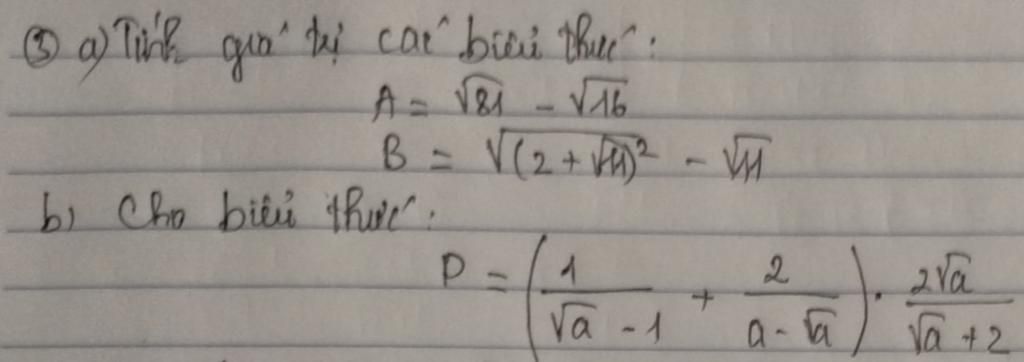 ③ a) Tính giá trị các biểu thức:
A = √81 - √16
B = √(2 + √11)² - √11
b) Cho biểu thức:
P = (1/(√a - 1) + 2/(a - √a)) . 2√a/(√a + 2)